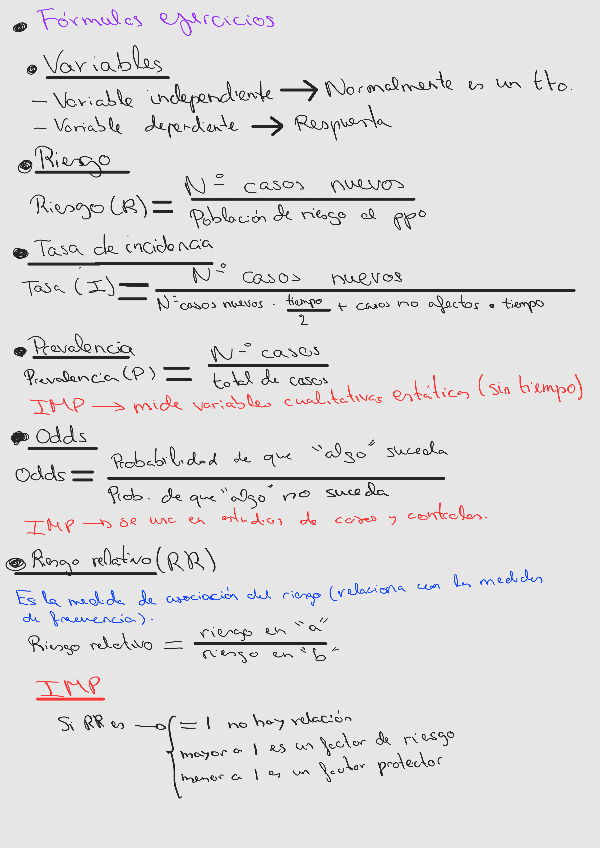 Fórmulas ejercicios
Variables
- Variable independiente → Normalmente es un tto.
- Variable dependiente → Respuesta
Riesgo
Riesgo (R) = Nº casos nuevos
Población de riesgo al ppo
Tasa de incidencia
Tasa (I) = Nº casos nuevos
Nº casos nuevos · tiempo/2 + casos no afectos · tiempo
Prevalencia
Prevalencia (P) = Nº casos
total de casos
IMP → mide variables cualitativas estáticas (sin tiempo)
Odds
Odds = Probabilidad de que "algo" suceda
Prob. de que "algo" no suceda
IMP → se usa en estudios de casos y controles.
Riesgo relativo (RR)
Es la medida de asociación del riesgo (relaciona con las medidas
de frecuencia).
Riesgo relativo = riesgo en "a"
riesgo en "b"
IMP
Si RR es → { = 1 no hay relación
mayor a 1 es un factor de riesgo
menor a 1 es un factor protector